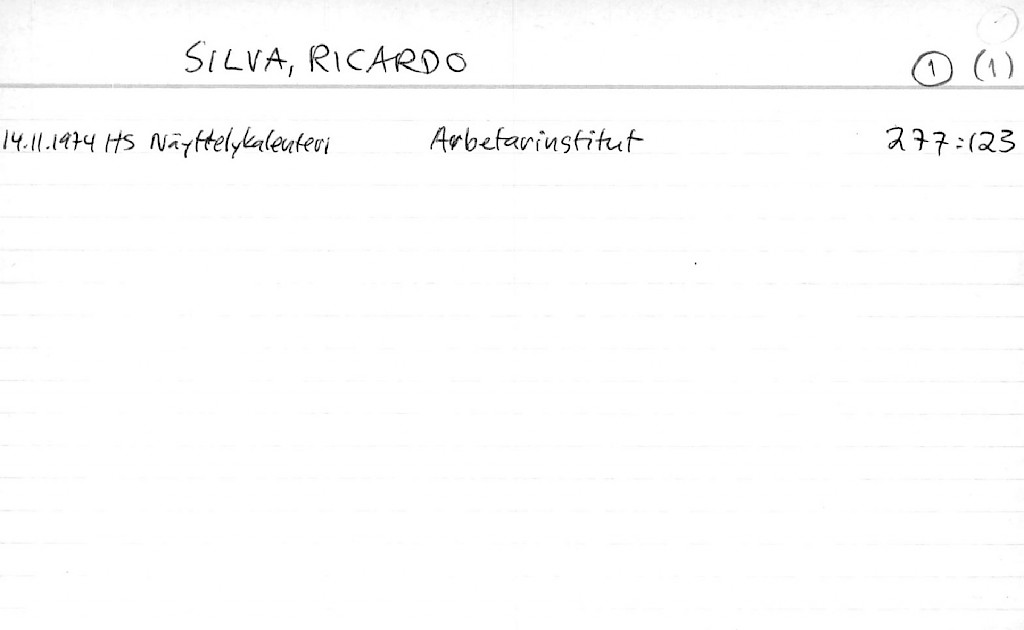 SILVA, RICARDO 1 (1)
14.11.1974 HS Näyttelykalenteri Arbetarinstitut 277:123